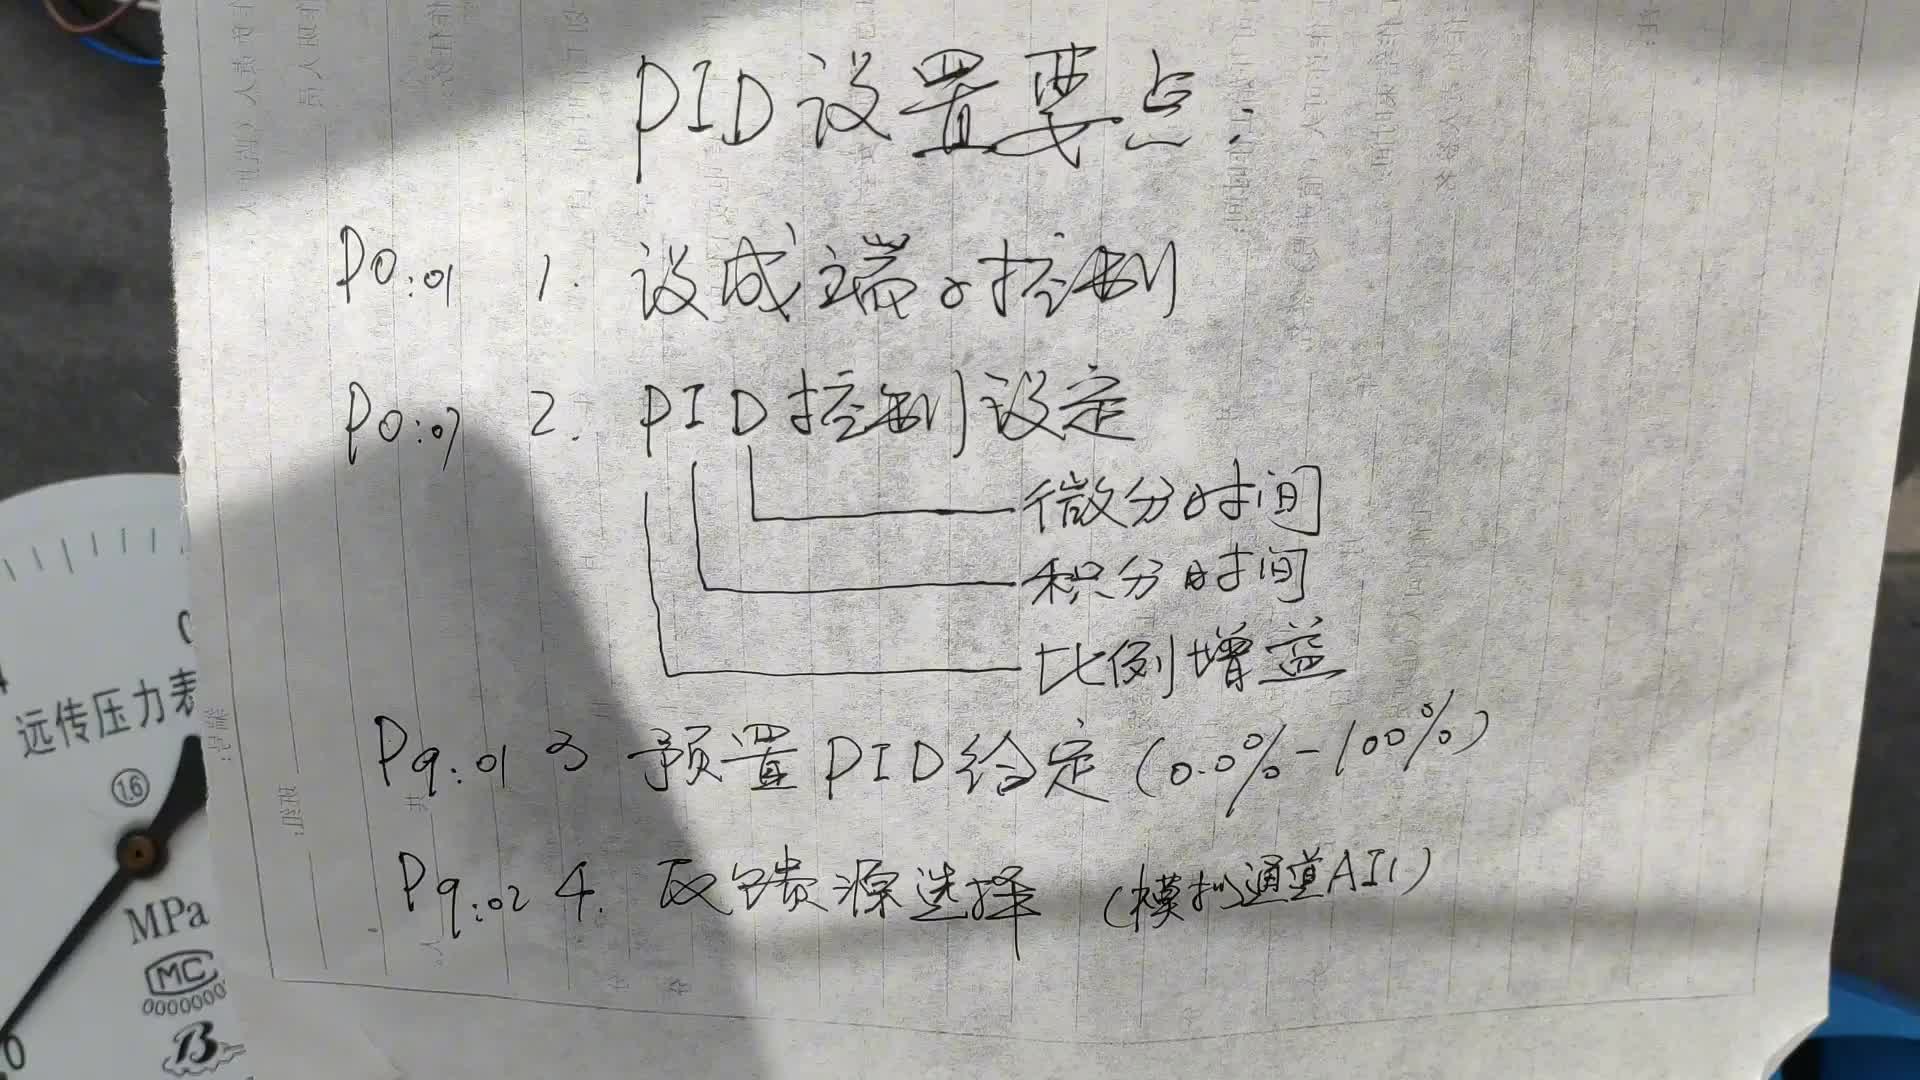 PID设置要点:
P0:01 1. 设成端口控制
P0:07 2. PID控制设定
微分时间
积分时间
比例增益
P9:01 3 预置PID给定(0.0%-100%)
P9:02 4. 反馈源选择 (模拟通道AI1)
远传压力表
1.6
MPa
MC
0